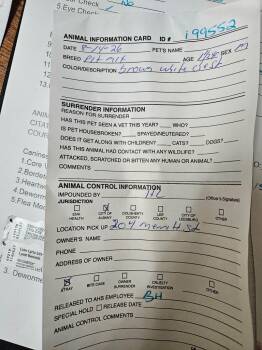 5.Eye Check No
ANIMAL INFORMATION CARD ID # 199552
DATE 8-14-26 PET'S NAME
BREED Pit mix AGE SEX M
COLOR/DESCRIPTION brown white chest
SURRENDER INFORMATION
REASON FOR SURRENDER
HAS THIS PET SEEN A VET THIS YEAR? WHO?
IS PET HOUSEBROKEN? SPAYED/NEUTERED?
DOES IT GET ALONG WITH CHILDREN? CATS? DOGS?
HAS THIS ANIMAL HAD CONTACT WITH ANY WILDLIFE?
ATTACKED, SCRATCHED OR BITTEN ANY HUMAN OR ANIMAL?
COMMENTS
ANIMAL CONTROL INFORMATION
IMPOUNDED BY (Officer's Signature)
JURISDICTION
HEALTH CITY OF ALBANY DOUGHERTY COUNTY LEE COUNTY CITY OF LEESBURG OTHER
LOCATION PICK UP 204 st
OWNER'S NAME
PHONE
ADDRESS OF OWNER
STRAY BITE CASE OWNER SURRENDER CRUELTY INVESTIGATION OTHER
RELEASED TO AHS EMPLOYEE BH
SPECIAL HOLD RELEASE DATE
ANIMAL CONTROL COMMENTS